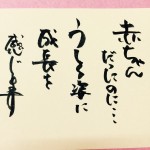 赤ちゃん
だったのに…
うしろ姿に
成長を
感じる時